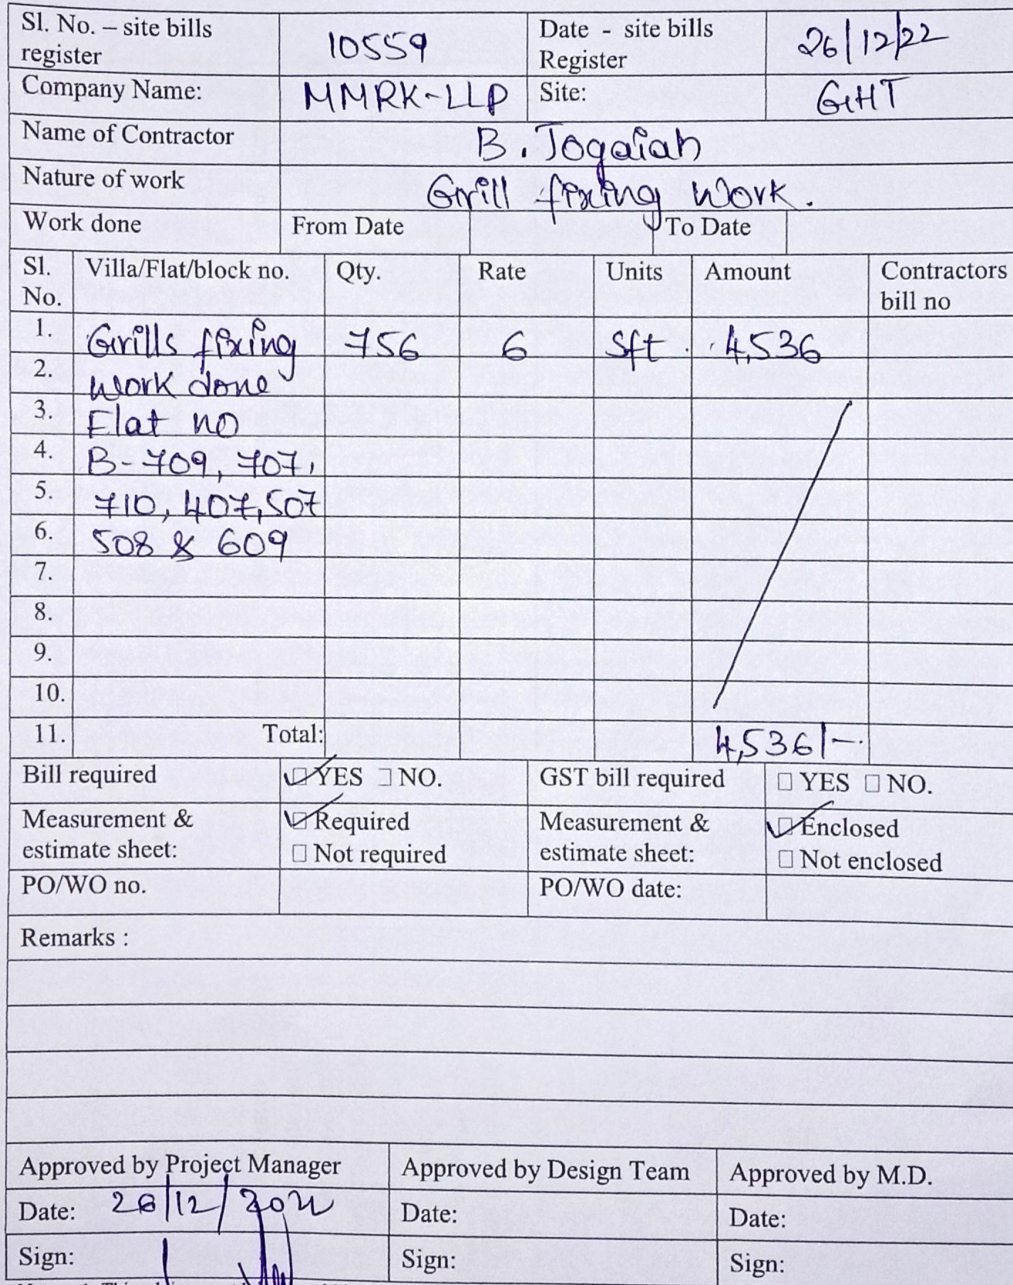 Sl. No. – site bills register 10559 Date - site bills Register 26/12/22
Company Name: MMRK-LLP Site: GHT
Name of Contractor B. Jogaiah
Nature of work Grill fixing work.
Work done From Date To Date
Sl. No. Villa/Flat/block no. Qty. Rate Units Amount Contractors bill no
1. Grills fixing 756 6 Sft. 4536
2. work done
3. Flat no
4. B-709, 707,
5. 710, 407, 507
6. 508 & 609
7.
8.
9.
10.
11. Total: 4,536/-
Bill required YES NO. GST bill required YES NO.
Measurement & estimate sheet: Required Not required Measurement & estimate sheet: Enclosed Not enclosed
PO/WO no. PO/WO date:
Remarks :
Approved by Project Manager Approved by Design Team Approved by M.D.
Date: 26/12/2022 Date: Date:
Sign: Sign: Sign: